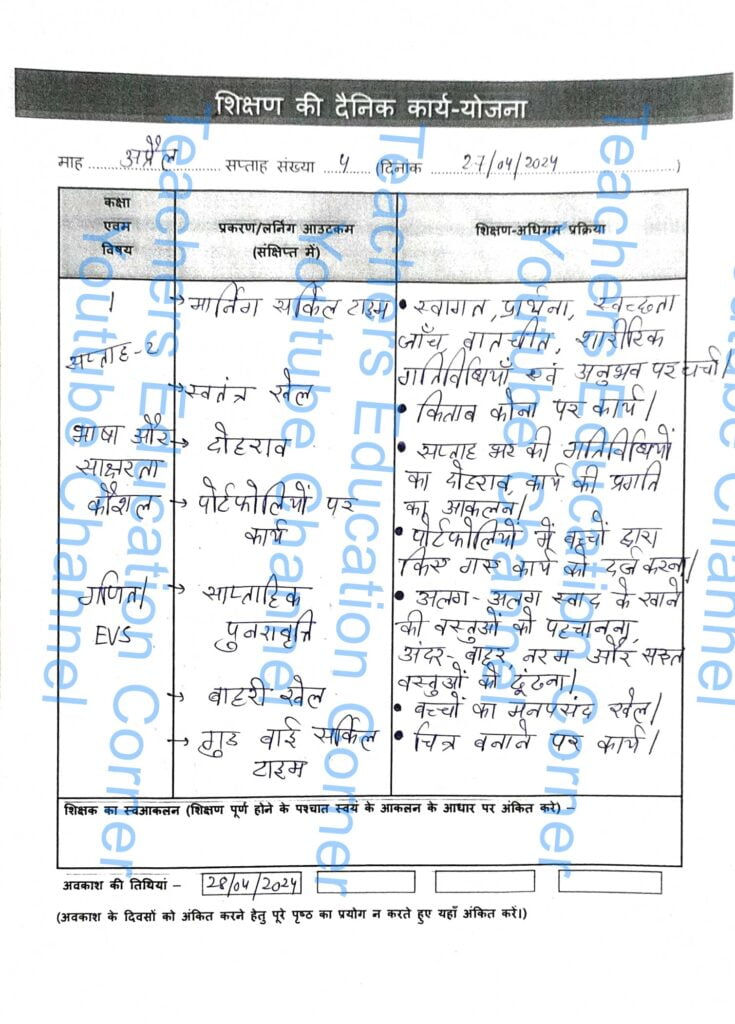 शिक्षण की दैनिक कार्य-योजना
माह अप्रैल सप्ताह संख्या 4 (दिनांक 27/04/2024)
कक्षा
एवम
विषय
प्रकरण/लर्निंग आउटकम
(संक्षिप्त में)
शिक्षण-अधिगम प्रक्रिया
1
सप्ताह-2
भाषा और
साक्षरता
कौशल
गणित/
EVS
→ मार्निंग सर्किल टाइम
→ स्वतंत्र खेल
→ दोहराव
→ पोर्टफोलियों पर
कार्य
→ साप्ताहिक
पुनरावृत्ति
→ बाहरी खेल
→ गुड बाई सर्किल
टाइम
• स्वागत, प्रार्थना, स्वच्छता
जाँच, बातचीत, शारीरिक
गतिविधियाँ एवं अनुभव पर चर्चा।
• किताब कोना पर कार्य।
• सप्ताह भर की गतिविधियों
का दोहराव, कार्य की प्रगति
का आकलन।
• पोर्टफोलियों में बच्चों द्वारा
किए गए कार्य को दर्ज करना।
• अलग-अलग स्वाद के खाने
की वस्तुओं को पहचानना,
अंदर-बाहर, नरम और सख्त
वस्तुओं को ढूंढना।
• बच्चों का मनपसंद खेल।
• चित्र बनाने पर कार्य।
शिक्षक का स्वआकलन (शिक्षण पूर्ण होने के पश्चात स्वयं के आकलन के आधार पर अंकित करे) –
अवकाश की तिथियां – 28/04/2024
(अवकाश के दिवसों को अंकित करने हेतु पूरे पृष्ठ का प्रयोग न करते हुए यहाँ अंकित करें।)
Teachers Education Corner
Youtube Channel
Teachers Education Corner
Youtube Channel
Teachers Education Corner
Youtube Channel